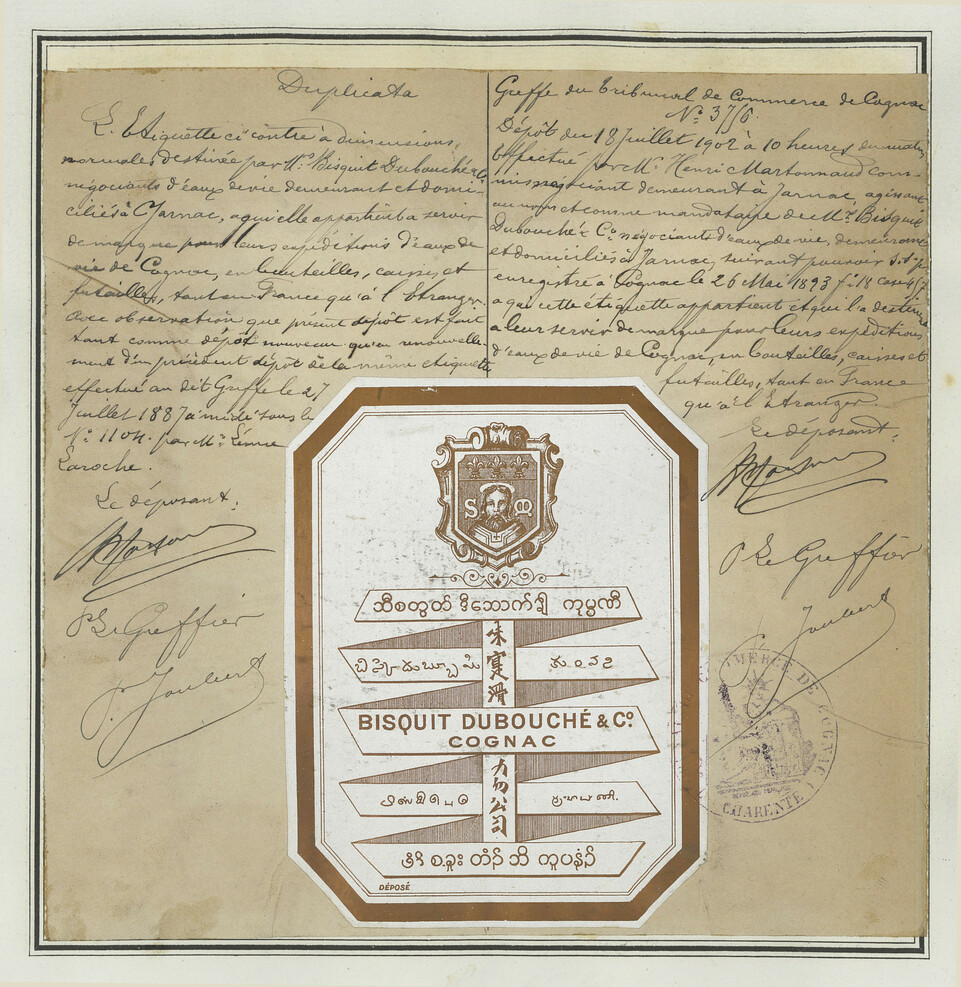 Duplicata
L'Etiquette ci contre à dimensions,
normales, destinée par Mrs Bisquit Dubouché & Co
négociants d'eaux de vie demeurant et domi-
ciliés à Jarnac, a qui elle appartient a servir
de marque pour leurs expéditions d'eaux de
vie de Cognac, en bouteilles, caisses et
futailles, tant en France qu'à l'Etranger.
Avec observation que présent dépôt est fait
tant comme dépôt nouveau qu'en renouvelle-
ment d'un précédent dépôt de la même étiquette
effectué au dit Greffe le 27
Juillet 1887 à midi sous le
No 1104. par Mr
Laroche.
Le déposant.
Pr Le Greffier
P. Joubert
Greffe du Tribunal de Commerce de Cognac
No 3776.
Dépôt du 18 Juillet 1902 à 10 heures du matin
Effectué par Mr Henri Martonnaud com-
mis négociant demeurant à Jarnac agissant
au nom et comme mandataire de Mrs Bisquit
Dubouché & Co négociants d'eaux de vie, demeurant
et domiciliés à Jarnac, suivant pouvoir s.s.p.
enregistré à Cognac le 26 Mai 1893 fo 18 case
a qui cette étiquette appartient et qui l'a destinée
a leur servir de marque pour leurs expéditions
d'eaux de vie de Cognac, en bouteilles, caisses et
futailles, tant en France
qu'à l'Etranger
Le déposant.
Pr Le Greffier
P. Joubert
S M
ဘီစတွတ် ဒီဘောက်ဒျှီ ကုမ္ပဏီ
味寔滑
BISQUIT DUBOUCHÉ & Co.
COGNAC
力勿公司
DÉPOSÉ
COMMERCE DE COGNAC
CHARENTE